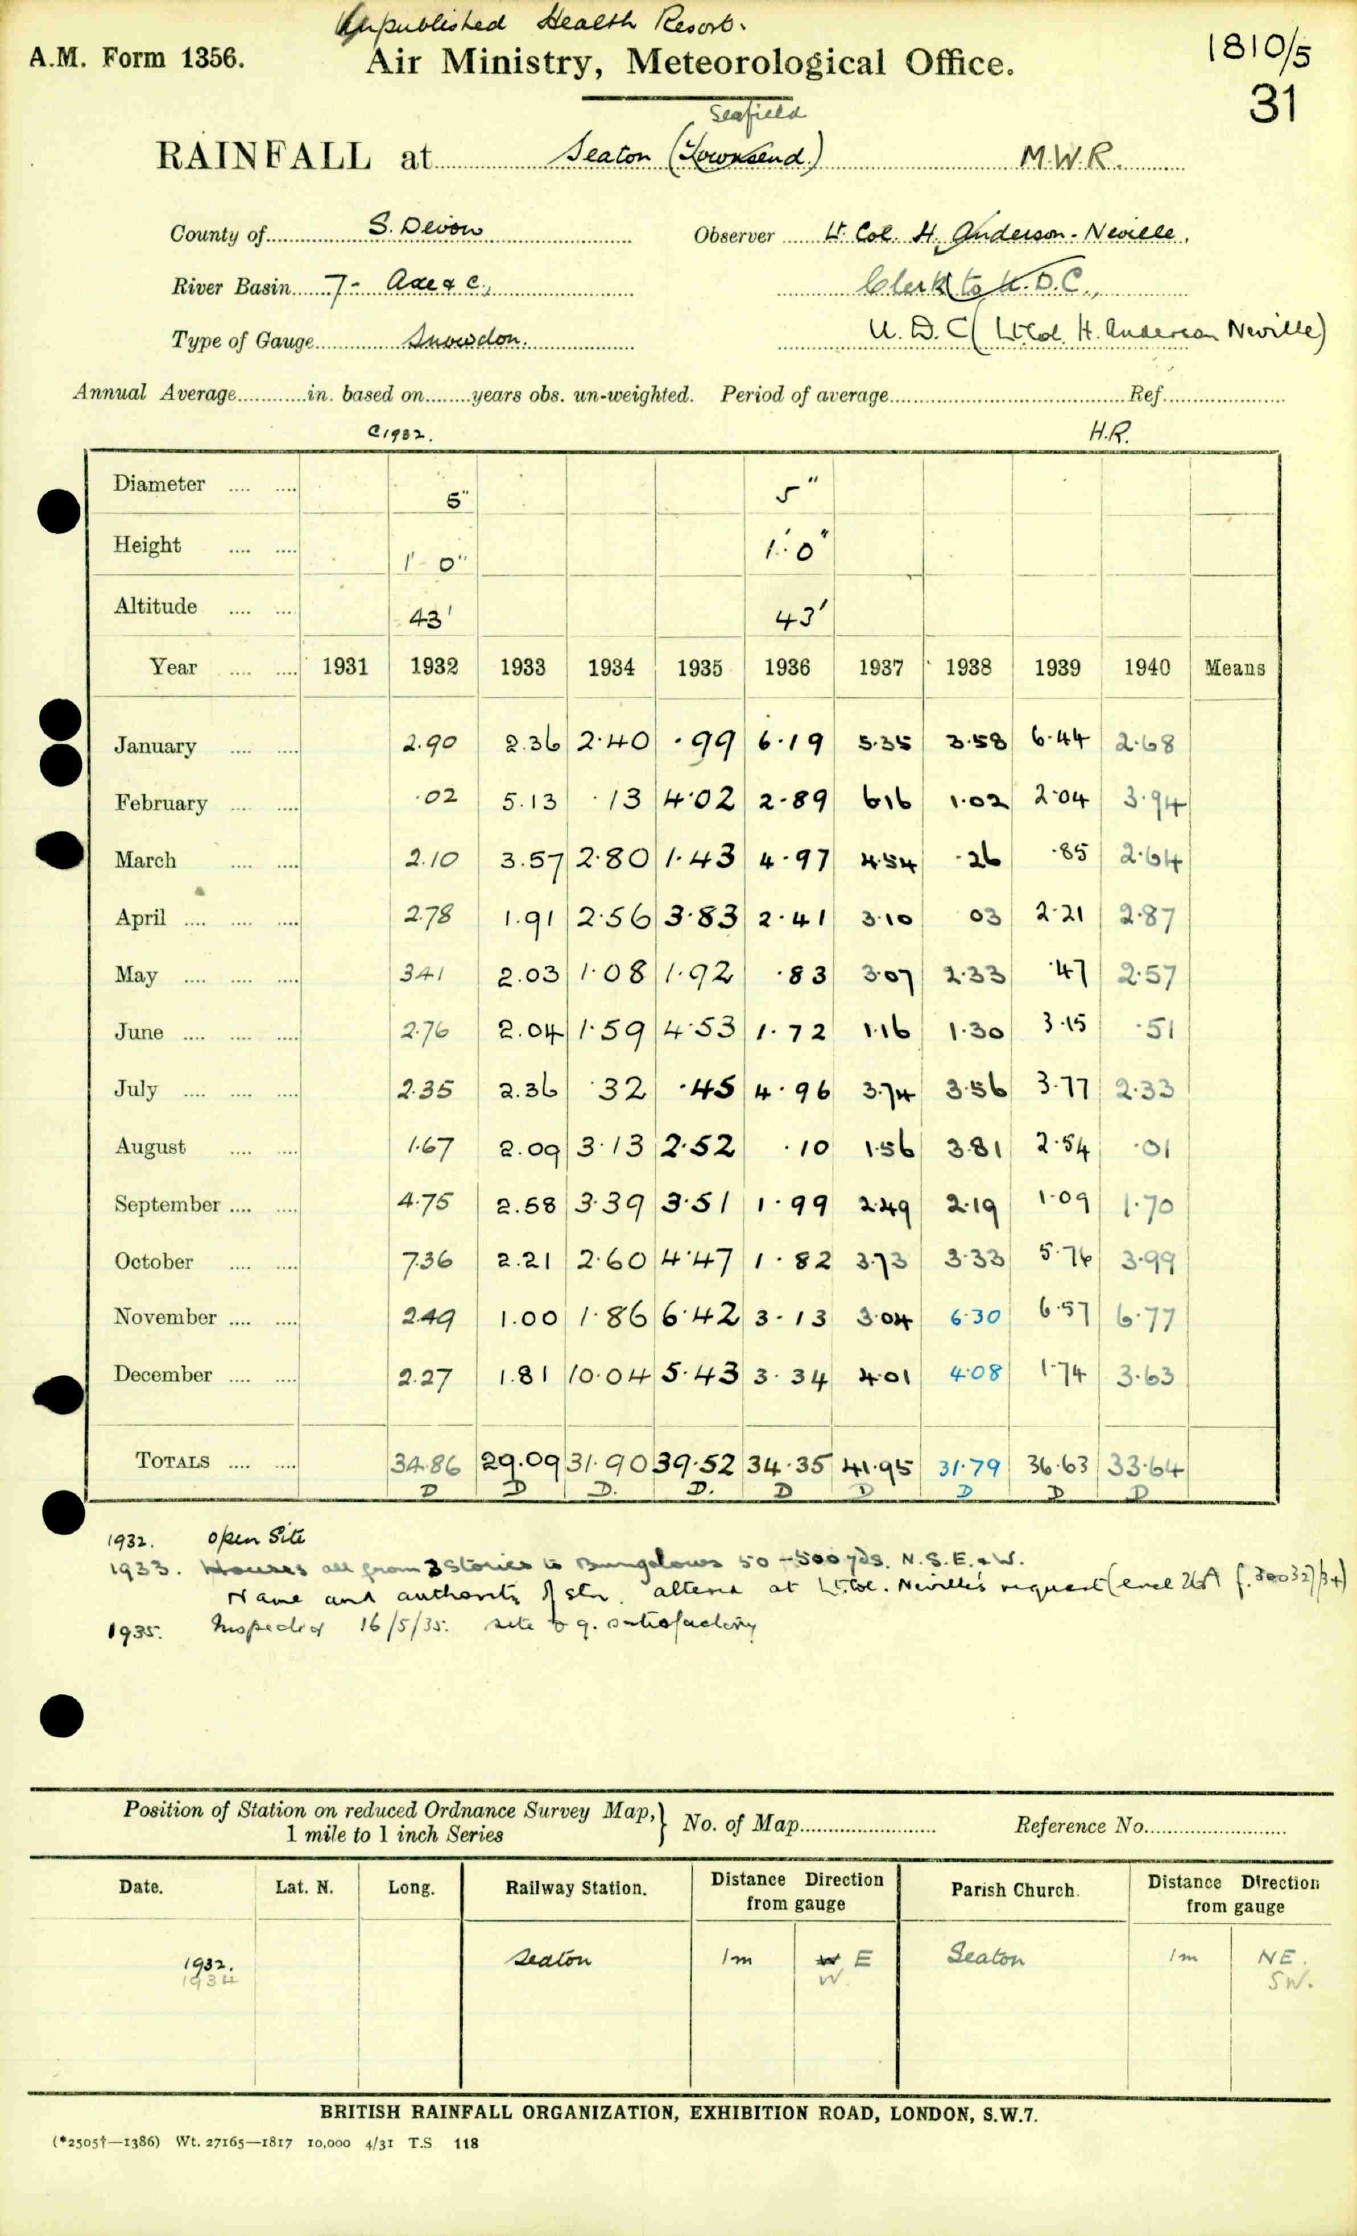 Unpublished Health Resort.
A.M. Form 1356.
Air Ministry, Meteorological Office.
1810/5
31
Seafield
RAINFALL at Seaton (Townsend.) M.W.R.
County of S. Devon Observer Lt. Col. H. Anderson-Neville.
River Basin 7- Axe & c., Clerk to U.D.C.,
Type of Gauge Snowdon. U.D.C (Lt.Col. H. Anderson Neville)
Annual Average in. based on years obs. un-weighted. Period of average Ref.
C1932. H.R.
Diameter 5" 5"
Height 1'-0" 1'.0"
Altitude 43' 43'
Year 1931 1932 1933 1934 1935 1936 1937 1938 1939 1940 Means
January 2.90 2.36 2.40 .99 6.19 5.35 3.58 6.44 2.68
February .02 5.13 .13 4.02 2.89 6.16 1.02 2.04 3.94
March 2.10 3.57 2.80 1.43 4.97 4.54 .26 .85 2.64
April 2.78 1.91 2.56 3.83 2.41 3.10 03 2.21 2.87
May 3.41 2.03 1.08 1.92 .83 3.07 2.33 .47 2.57
June 2.76 2.04 1.59 4.53 1.72 1.16 1.30 3.15 .51
July 2.35 2.36 .32 .45 4.96 3.74 3.56 3.77 2.33
August 1.67 2.09 3.13 2.52 .10 1.56 3.81 2.54 .01
September 4.75 2.58 3.39 3.51 1.99 2.49 2.19 1.09 1.70
October 7.36 2.21 2.60 4.47 1.82 3.73 3.33 5.76 3.99
November 2.49 1.00 1.86 6.42 3.13 3.04 6.30 6.57 6.77
December 2.27 1.81 10.04 5.43 3.34 4.01 4.08 1.74 3.63
TOTALS 34.86 29.09 31.90 39.52 34.35 41.95 31.79 36.63 33.64
D D D. D. D D D D D
1932. Open Site
1933. Houses all from 3 Stories to Bungalows 50-500 yds. N.S.E. & W.
Name and authority of stn. altered at Lt.Col. Neville's request
1935. Inspected 16/5/35. site & g. satisfactory
Position of Station on reduced Ordnance Survey Map,
1 mile to 1 inch Series
No. of Map Reference No.
Date. Lat. N. Long. Railway Station. Distance Direction from gauge Parish Church. Distance Direction from gauge
1932. Seaton 1m W E Seaton 1m NE.
1934 W. SW.
BRITISH RAINFALL ORGANIZATION, EXHIBITION ROAD, LONDON, S.W.7.
(*2505†—1386) Wt. 27165—1817 10,000 4/31 T.S 118